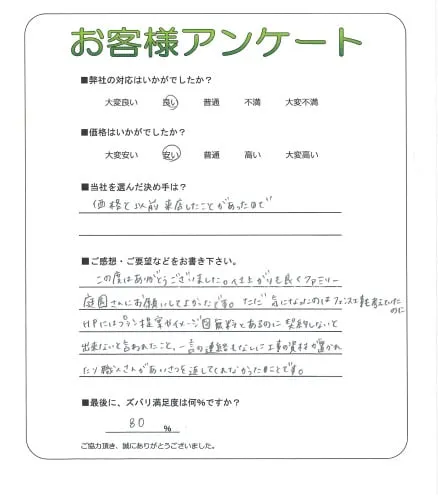 お客様アンケート
■弊社の対応はいかがでしたか？
大変良い 良い 普通 不満 大変不満
■価格はいかがでしたか？
大変安い 安い 普通 高い 大変高い
■当社を選んだ決め手は？
価格と以前来店したことがあったので
■ご感想・ご要望などをお書き下さい。
この度はありがとうございました。仕上がりも良くファミリー
庭園さんにお願いしてよかったです。ただ気になったのはフェンス工事を考えていたのに
HPにはプラン提案やイメージ図無料とあるのに契約しないと
出来ないと言われたこと、一言の連絡もなしに工事の資材が置かれ
たり職人さんがあいさつを返してくれなかったことです。
■最後に、ズバリ満足度は何％ですか？
80 %
ご協力頂き、誠にありがとうございました。